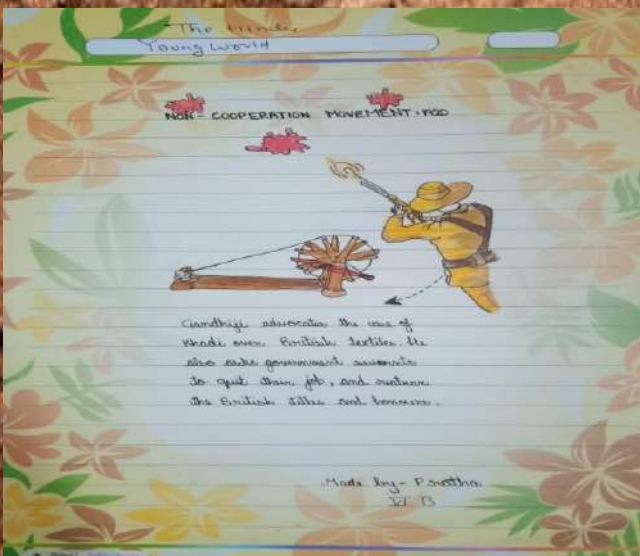 The Hindu
Young World
NON-COOPERATION MOVEMENT:1920
Gandhiji advocates the use of
khadi over British textiles. He
also asks government servants
to quit their job, and return
the British titles and honours.
Made by- Pratha
VI B